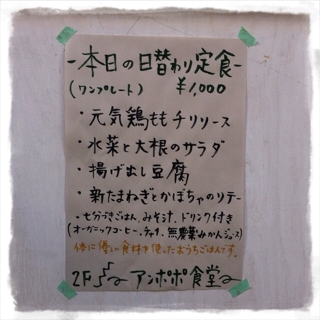 -本日の日替わり定食-
(ワンプレート) ¥1,000
・元気鶏ももチリソース
・水菜と大根のサラダ
・揚げ出し豆腐
・新たまねぎとかぼちゃのソテー
・七分づきごはん、みそ汁、ドリンク付き
(オーガニックコーヒー、チャイ、無農薬みかんジュース)
体に優しい食材を使ったおうちごはんです。
2F アンポポ食堂